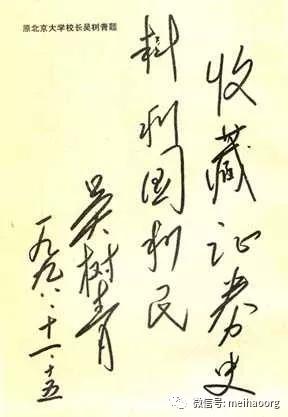 原北京大学校长吴树青题
收藏证券史
料利国利民
吴树青
一九九八.十一.十五
微信号: meihaoorg